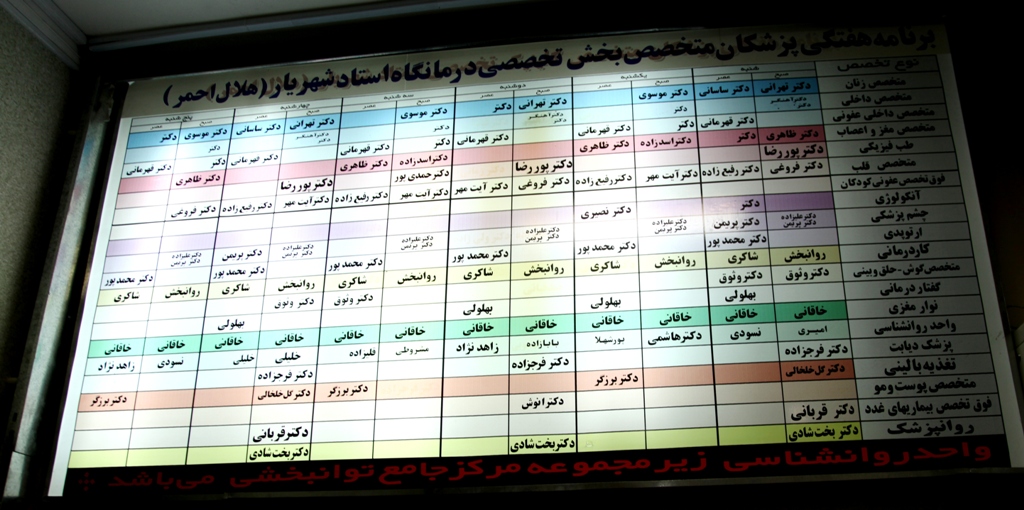 برنامه هفتگی پزشکان متخصص بخش تخصصی درمانگاه استاد شهریار (هلال احمر)
نوع تخصص شنبه یکشنبه دوشنبه سه شنبه چهارشنبه پنج شنبه
صبح عصر صبح عصر صبح عصر صبح عصر صبح عصر صبح عصر
متخصص زنان دکتر تهرانی دکتر ساسانی دکتر موسوی دکتر تهرانی دکتر دکتر موسوی دکتر تهرانی دکتر ساسانی دکتر موسوی دکتر
متخصص داخلی دکتر دکتر دکتر دکتر دکتر دکتر
متخصص داخلی عفونی دکتر قهرمانی دکتر قهرمانی دکتر قهرمانی دکتر قهرمانی دکتر قهرمانی دکتر قهرمانی
متخصص مغز و اعصاب دکتر طاهری دکتر دکتر اسدزاده دکتر طاهری دکتر اسدزاده دکتر طاهری دکتر طاهری
طب فیزیکی دکتر پور رضا دکتر پور رضا دکتر حمدی پور دکتر پور رضا
متخصص قلب دکتر فروغی دکتر رفیع زاده دکتر آیت مهر دکتر رفیع زاده دکتر فروغی دکتر آیت مهر دکتر آیت مهر دکتر رفیع زاده دکتر آیت مهر دکتر رفیع زاده دکتر فروغی
فوق تخصص عفونی کودکان
آنکولوژی دکتر دکتر نصیری
چشم پزشکی دکتر علیزاده دکتر پریمن دکتر پریمن دکتر علیزاده دکتر پریمن دکتر علیزاده دکتر پریمن دکتر علیزاده دکتر پریمن دکتر علیزاده دکتر پریمن دکتر پریمن دکتر علیزاده دکتر پریمن
ارتوپدی دکتر محمد پور دکتر محمد پور دکتر محمد پور دکتر محمد پور دکتر محمد پور دکتر محمد پور
کاردرمانی روانبخش شاکری روانبخش شاکری روانبخش شاکری روانبخش شاکری روانبخش شاکری روانبخش شاکری
متخصص گوش - حلق و بینی دکتر وثوق دکتر وثوق دکتر وثوق دکتر وثوق
گفتار درمانی بهلولی بهلولی بهلولی بهلولی
نوار مغزی خاقانی خاقانی خاقانی خاقانی خاقانی خاقانی خاقانی خاقانی خاقانی خاقانی خاقانی خاقانی
واحد روانشناسی امیری نسودی دکتر هاشمی پورسهلا بابازاده زاهد نژاد مشروطی قلیزاده خلیلی خلیلی نسودی زاهد نژاد
پزشک دیابت دکتر فرجزاده دکتر فرجزاده دکتر فرجزاده
تغذیه بالینی دکتر گل خلخالی دکتر برزگر دکتر برزگر دکتر گل خلخالی دکتر برزگر
متخصص پوست و مو دکتر انوش
فوق تخصص بیماریهای غدد دکتر قربانی دکتر قربانی
روانپزشک دکتر بخت شادی دکتر بخت شادی دکتر بخت شادی
واحد روانشناسی زیر مجموعه مرکز جامع توانبخشی می باشد